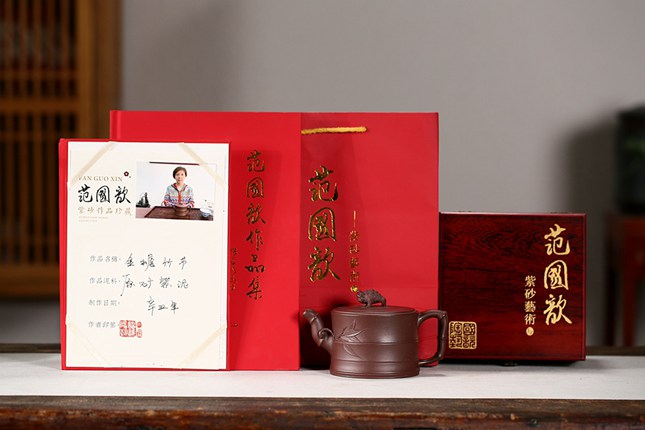 FAN GUO XIN
范國歆
紫砂作品珍藏
作品名稱: 金蟾竹节
作品泥料: 原矿紫泥
制作日期: 辛丑年
作者印鑒:
范國歆作品集
范國歆
范國歆
紫砂藝術